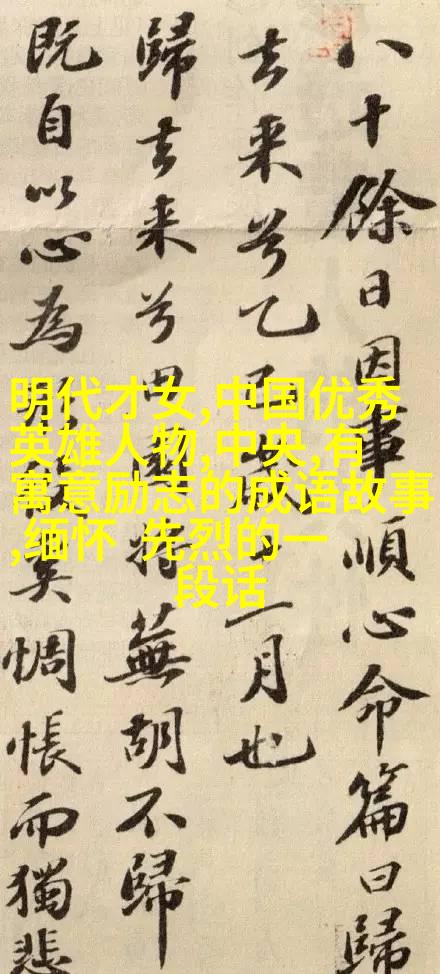 八十餘日因事順心命篇曰歸
去来兮乙巳歲十一月也
歸去来兮田園将蕪胡不歸
既自以心為形役奚惆悵而獨悲
明代才女,中国优秀
英雄人物,中央,有
寓意励志的成语故事
,缅怀 先烈的一
段话